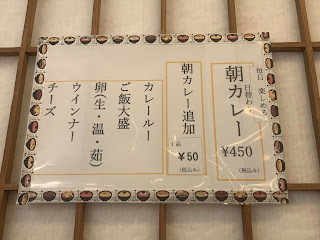 毎日 楽しめる
日替わり
朝カレー
¥450
(税込み)
朝カレー追加
1品
¥50
(税込み)
カレールー
ご飯大盛
卵(生・温・茹)
ウインナー
チーズ